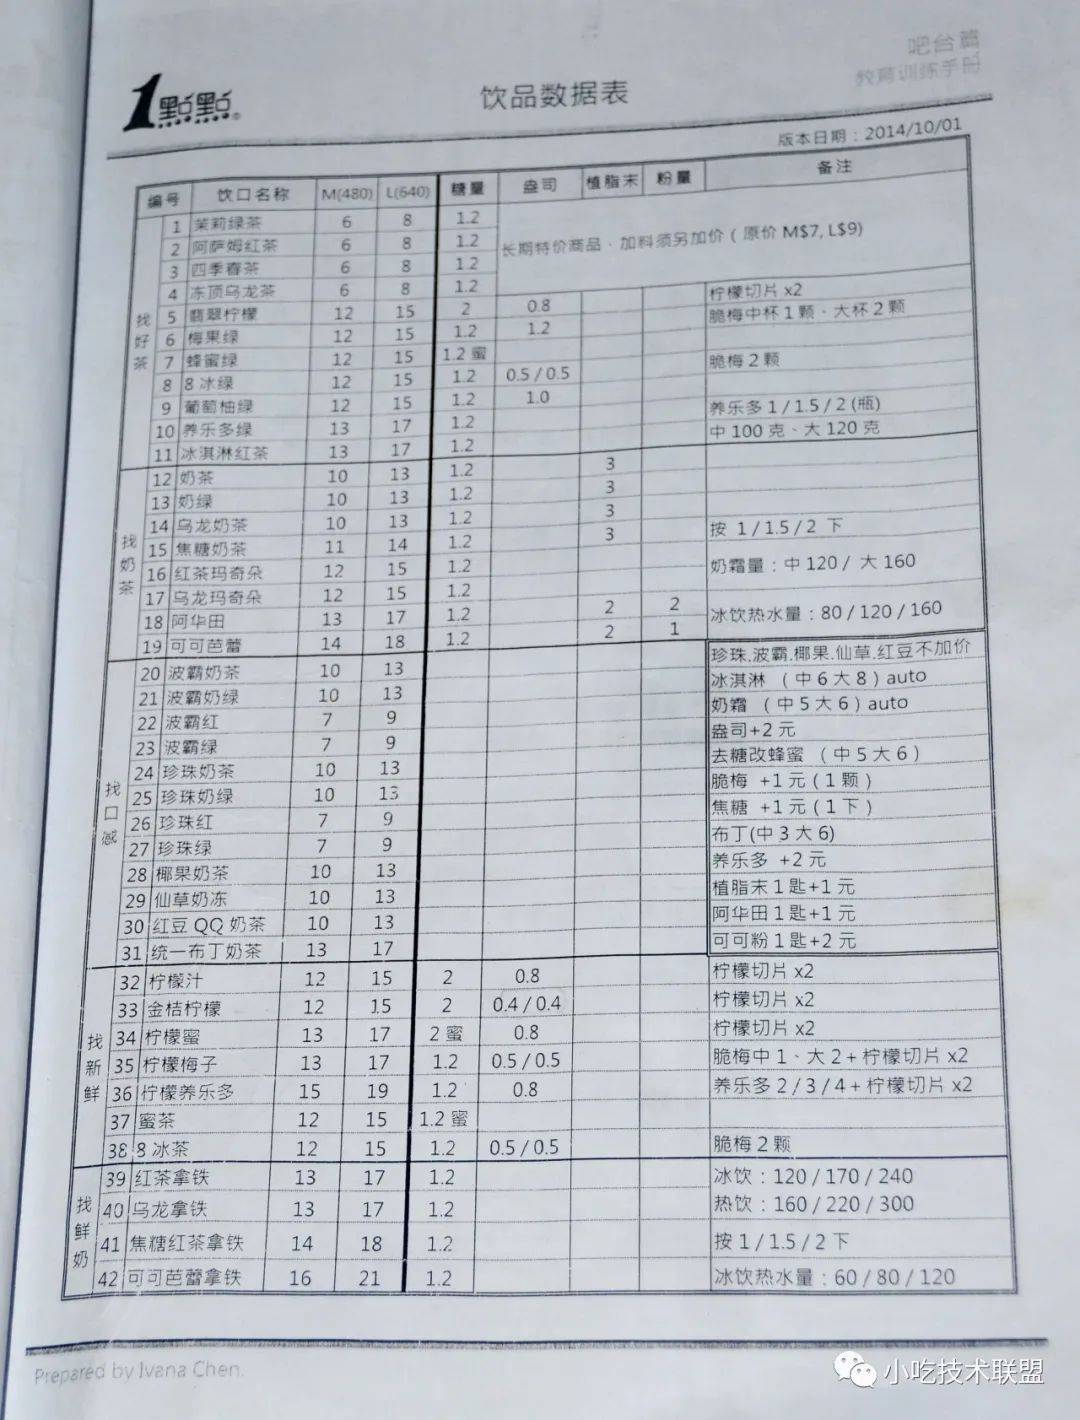 吧台篇
教育训练手册
1點點®
饮品数据表
版本日期：2014/10/01
编号 饮口名称 M(480) L(640) 糖量 盎司 植脂末 粉量 备注
找好茶
1 茉莉绿茶 6 8 1.2
2 阿萨姆红茶 6 8 1.2
长期特价商品，加料须另加价（原价 M$7, L$9)
3 四季春茶 6 8 1.2
4 冻顶乌龙茶 6 8 1.2
5 翡翠柠檬 12 15 2 0.8 柠檬切片 x2
6 梅果绿 12 15 1.2 1.2 脆梅中杯 1 颗、大杯 2 颗
7 蜂蜜绿 12 15 1.2 蜜
8 8 冰绿 12 15 1.2 0.5 / 0.5 脆梅 2 颗
9 葡萄柚绿 12 15 1.2 1.0
10 养乐多绿 13 17 1.2 养乐多 1 / 1.5 / 2 (瓶)
11 冰淇淋红茶 13 17 1.2 中 100 克、大 120 克
找奶茶
12 奶茶 10 13 1.2 3
13 奶绿 10 13 1.2 3
14 乌龙奶茶 10 13 1.2 3
15 焦糖奶茶 11 14 1.2 3 按 1 / 1.5 / 2 下
16 红茶玛奇朵 12 15 1.2 奶霜量：中 120 / 大 160
17 乌龙玛奇朵 12 15 1.2
18 阿华田 13 17 1.2 2 2 冰饮热水量：80 / 120 / 160
19 可可芭蕾 14 18 1.2 2 1
找口感
20 波霸奶茶 10 13 珍珠.波霸.椰果.仙草.红豆不加价
21 波霸奶绿 10 13 冰淇淋 （中 6 大 8）auto
22 波霸红 7 9 奶霜 （中 5 大 6）auto
23 波霸绿 7 9 盎司+2 元
24 珍珠奶茶 10 13 去糖改蜂蜜 （中 5 大 6）
25 珍珠奶绿 10 13 脆梅 +1 元（1 颗）
26 珍珠红 7 9 焦糖 +1 元（1 下）
27 珍珠绿 7 9 布丁(中 3 大 6)
28 椰果奶茶 10 13 养乐多 +2 元
29 仙草奶冻 10 13 植脂末 1 匙+1 元
30 红豆 QQ 奶茶 10 13 阿华田 1 匙+1 元
31 统一布丁奶茶 13 17 可可粉 1 匙+2 元
找新鲜
32 柠檬汁 12 15 2 0.8 柠檬切片 x2
33 金桔柠檬 12 15 2 0.4 / 0.4 柠檬切片 x2
34 柠檬蜜 13 17 2 蜜 0.8 柠檬切片 x2
35 柠檬梅子 13 17 1.2 0.5 / 0.5 脆梅中 1、大 2 + 柠檬切片 x2
36 柠檬养乐多 15 19 1.2 0.8 养乐多 2 / 3 / 4 + 柠檬切片 x2
37 蜜茶 12 15 1.2 蜜
38 8 冰茶 12 15 1.2 0.5 / 0.5 脆梅 2 颗
找鲜奶
39 红茶拿铁 13 17 1.2 冰饮：120 / 170 / 240
40 乌龙拿铁 13 17 1.2 热饮：160 / 220 / 300
41 焦糖红茶拿铁 14 18 1.2 按 1 / 1.5 / 2 下
42 可可芭蕾拿铁 16 21 1.2 冰饮热水量：60 / 80 / 120
Prepared by Ivana Chen.
小吃技术联盟